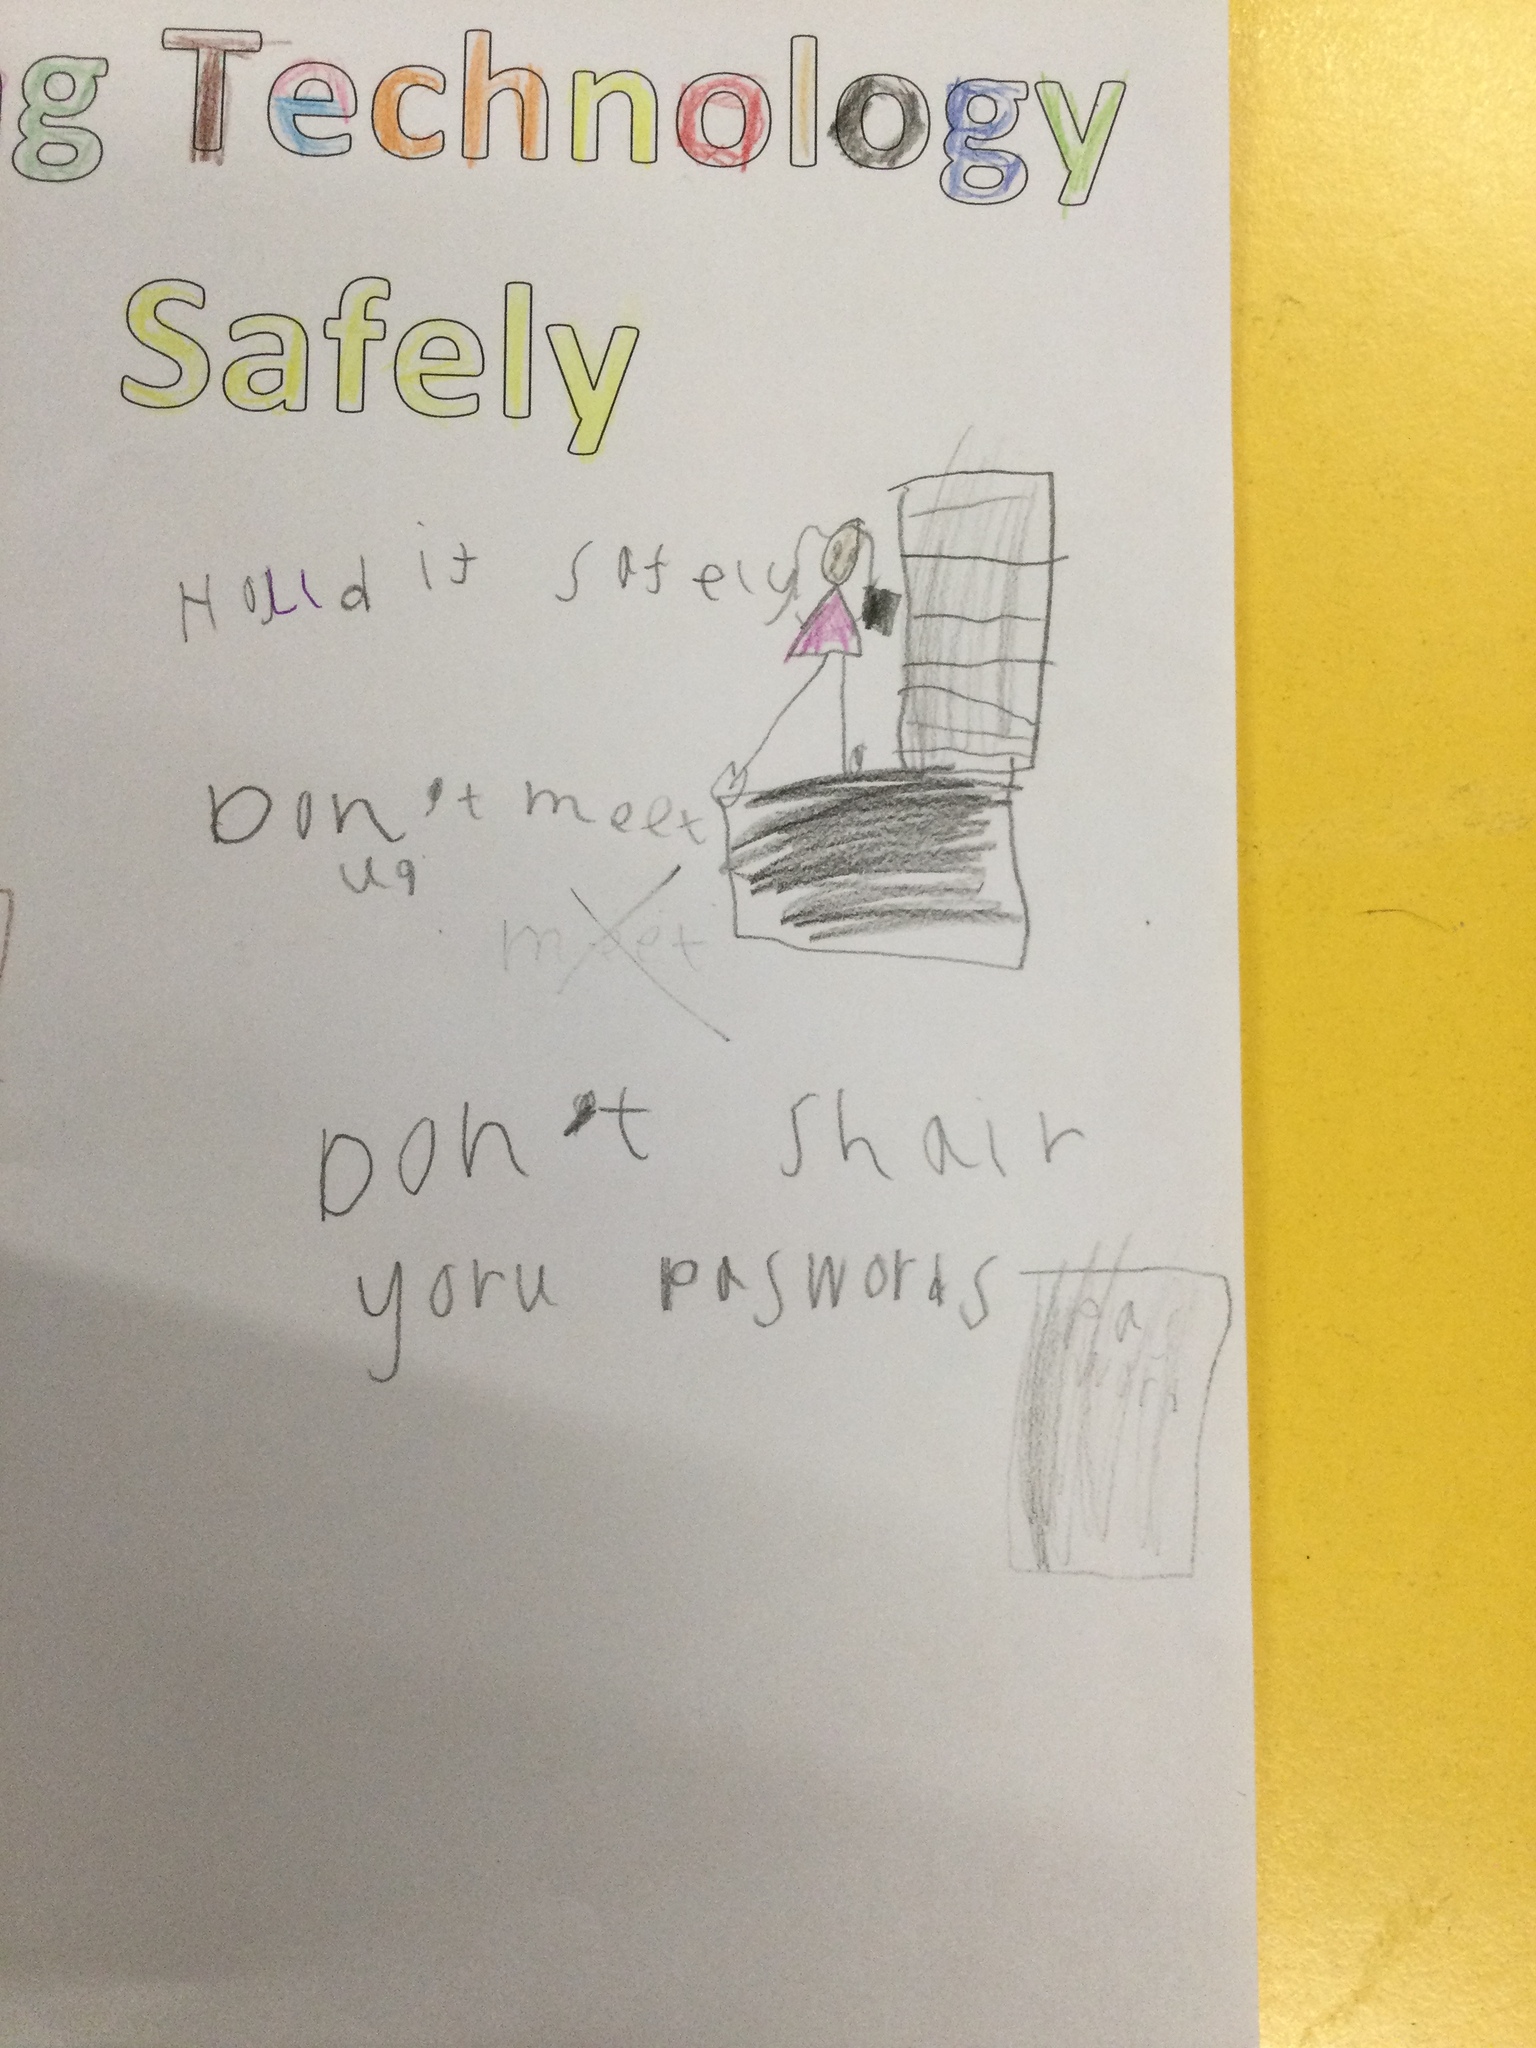 g Technology
Safely
Holld it safely
Don't meet
up
meet
Don't shair
yoru paswords